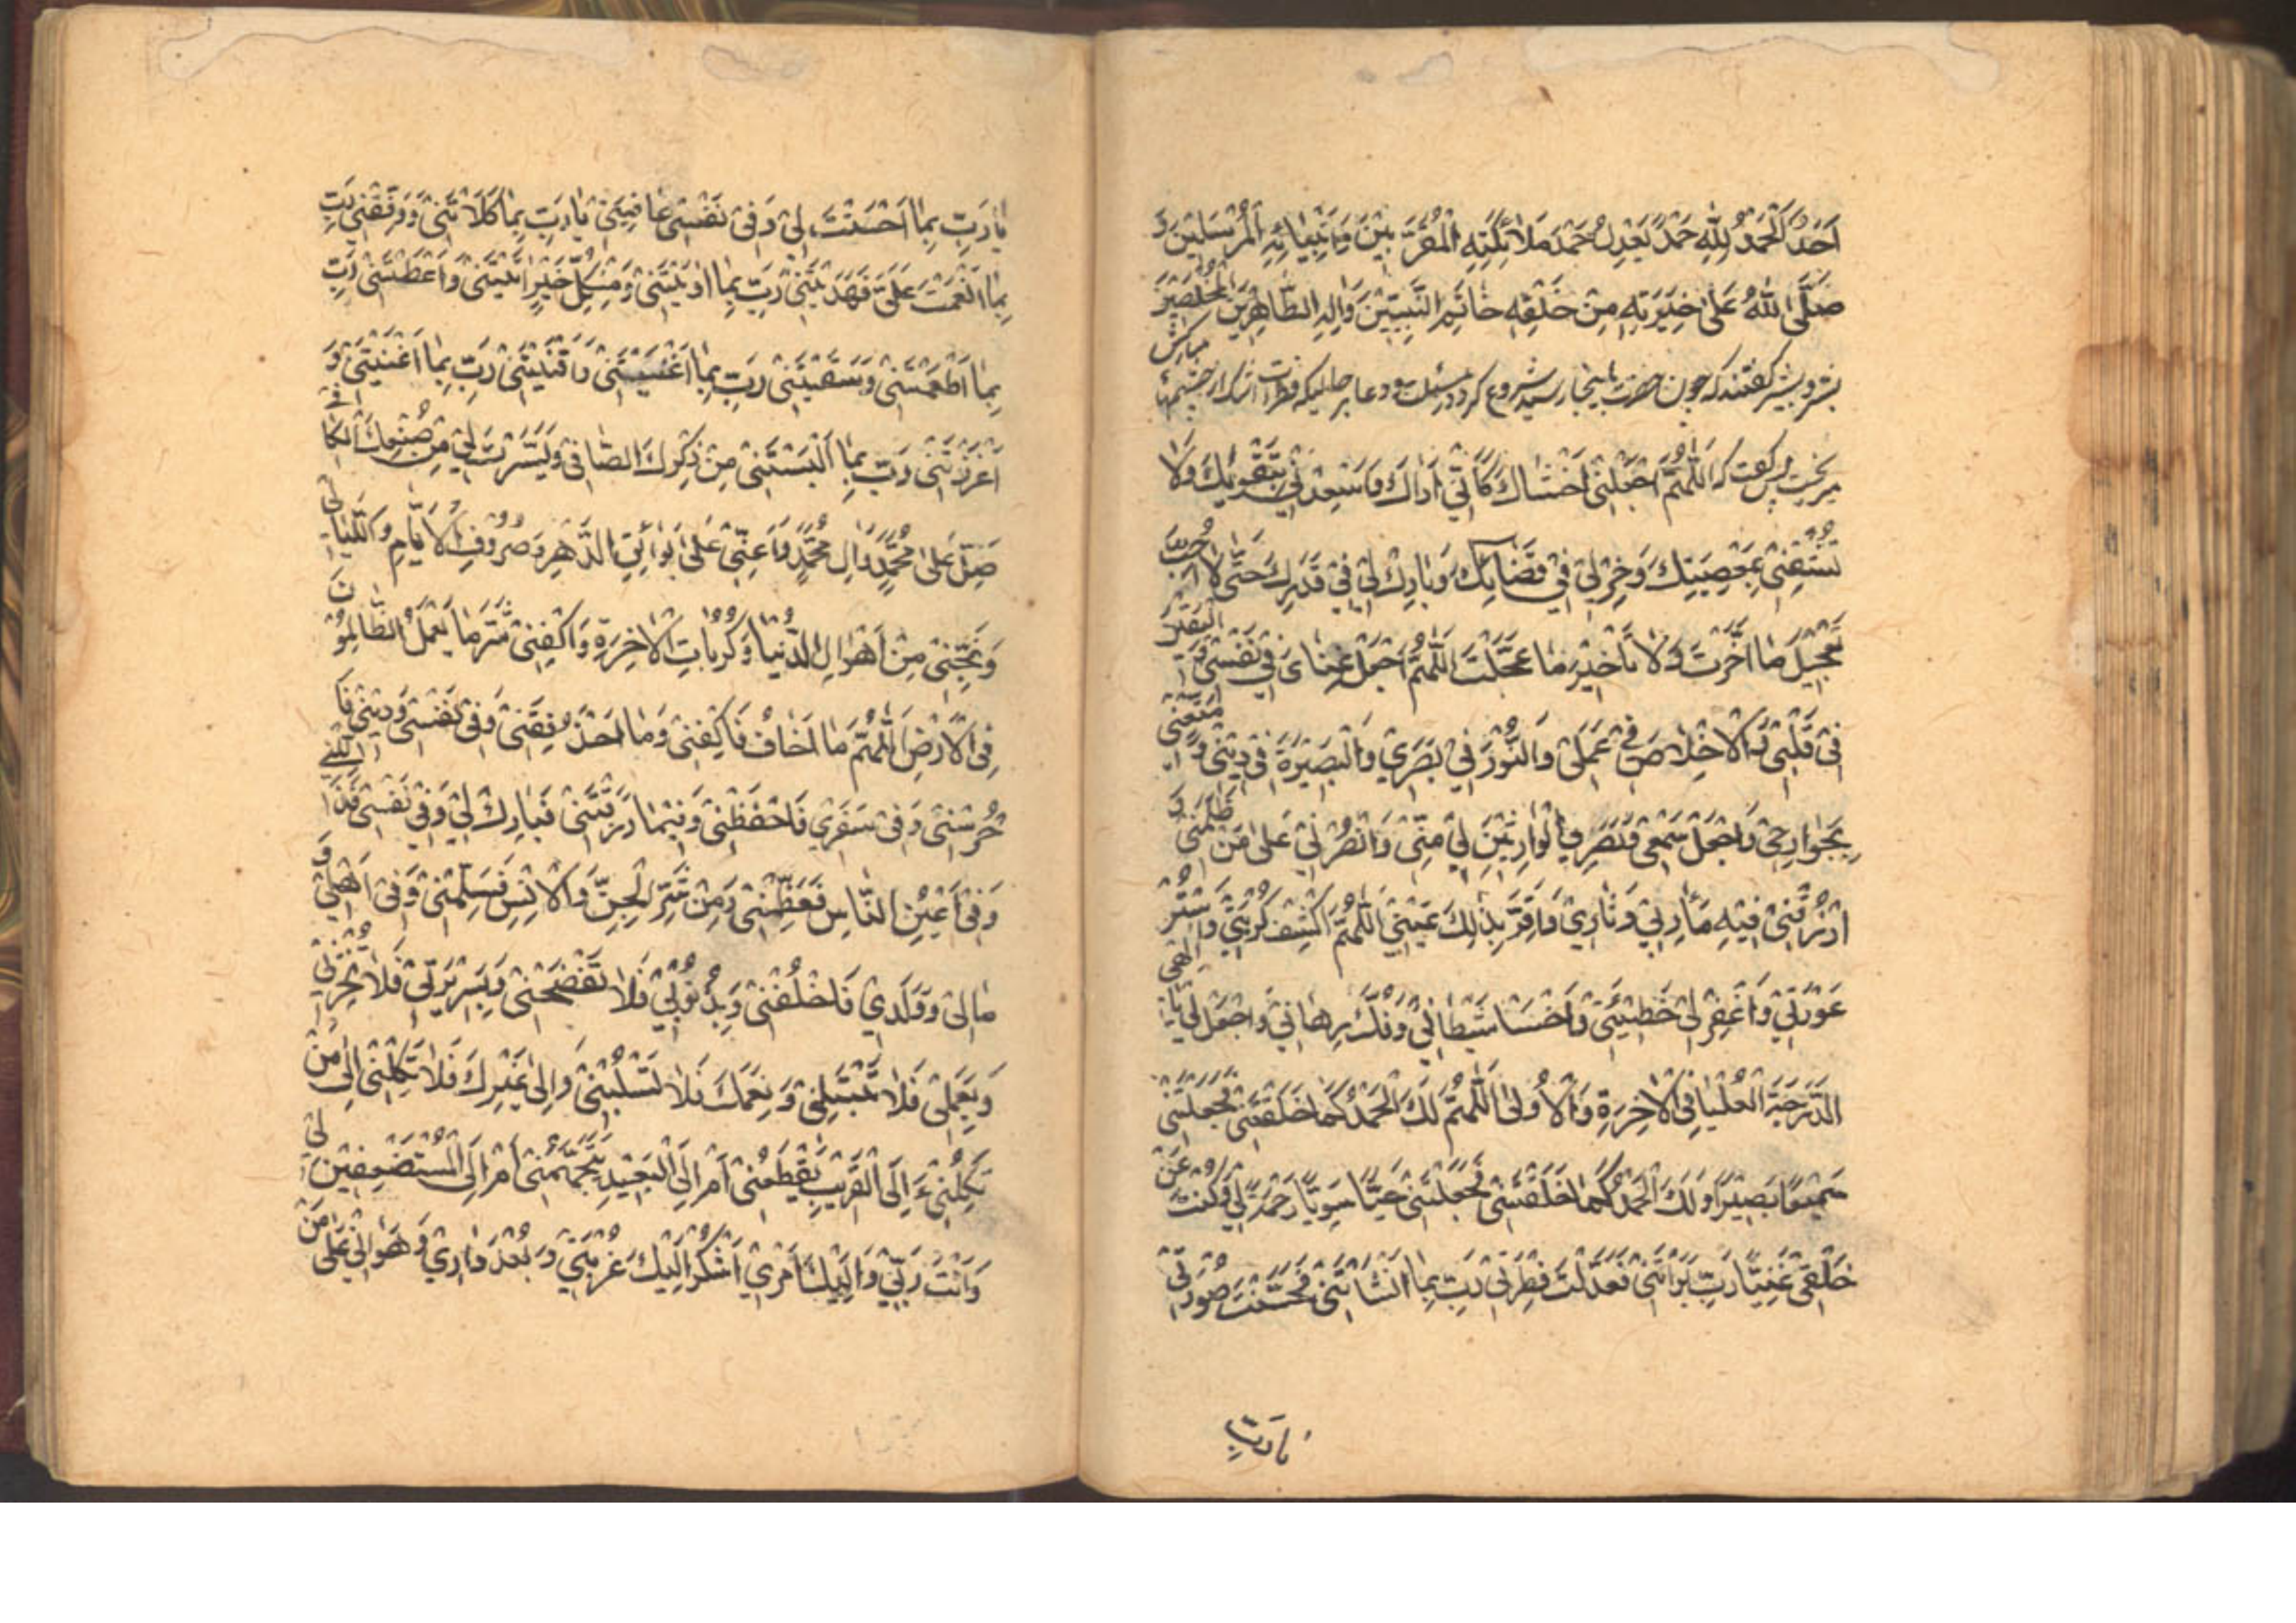 اَحَدٌ اَلْحَمْدُ لِلّٰهِ حَمْدًا يَعْدِلُ حَمْدَ مَلَائِكَتِهِ الْمُقَرَّبِيْنَ وَاَنْبِيَائِهِ الْمُرْسَلِيْنَ وَ
صَلَّى اللّٰهُ عَلٰى خِيَرَتِهِ مِنْ خَلْقِهِ خَاتَمِ النَّبِيِّيْنَ وَآلِهِ الطَّاهِرِيْنَ الْمُخْلَصِيْنَ
بشر و بشير گفتند كه چون حضرت باينجا رسيد شروع كرد در مسئلت و دعا در حاليكه قطرات اشك از چشمهاى مباركش
ميريخت پس گفت كه اَللّٰهُمَّ اجْعَلْنِيْ اَخْشَاكَ كَاَنِّيْ اَرَاكَ وَاَسْعِدْنِيْ بِتَقْوٰيكَ وَلَا
تُشْقِنِيْ بِمَعْصِيَتِكَ وَخِرْ لِيْ فِيْ قَضَائِكَ وَبَارِكْ لِيْ فِيْ قَدَرِكَ حَتّٰى لَا اُحِبَّ
تَعْجِيْلَ مَا اَخَّرْتَ وَلَا تَأْخِيْرَ مَا عَجَّلْتَ اَللّٰهُمَّ اجْعَلْ غِنَايَ فِيْ نَفْسِيْ وَالْيَقِيْنَ
فِيْ قَلْبِيْ وَالْاِخْلَاصَ فِيْ عَمَلِيْ وَالنُّوْرَ فِيْ بَصَرِيْ وَالْبَصِيْرَةَ فِيْ دِيْنِيْ وَمَتِّعْنِيْ
بِجَوَارِحِيْ وَاجْعَلْ سَمْعِيْ وَبَصَرِيْ الْوَارِثَيْنِ لِيْ مِنِّيْ وَانْصُرْنِيْ عَلٰى مَنْ ظَلَمَنِيْ وَ
ارْزُقْنِيْ فِيْهِ مَاٰرِبِيْ وَثَارِيْ وَاَقِرَّ بِذٰلِكَ عَيْنِيْ اَللّٰهُمَّ اكْشِفْ كُرْبَتِيْ وَاسْتُرْ
عَوْرَتِيْ وَاغْفِرْ لِيْ خَطِيْئَتِيْ وَاخْسَأْ شَيْطَانِيْ وَفُكَّ رِهَانِيْ وَاجْعَلْ لِيْ يَا اِلٰهِيْ
الدَّرَجَةَ الْعُلْيَا فِي الْاٰخِرَةِ وَالْاُوْلٰى اَللّٰهُمَّ لَكَ الْحَمْدُ كَمَا خَلَقْتَنِيْ فَجَعَلْتَنِيْ
سَمِيْعًا بَصِيْرًا وَلَكَ الْحَمْدُ كَمَا خَلَقْتَنِيْ فَجَعَلْتَنِيْ حَيًّا سَوِيًّا رَحْمَةً لِيْ وَكُنْتَ عَنْ
خَلْقِيْ غَنِيًّا رَبِّ بِمَا بَرَأْتَنِيْ فَعَدَّلْتَ فِطْرَتِيْ رَبِّ بِمَا اَنْشَأْتَنِيْ فَحَسَّنْتَ صُوْرَتِيْ
يا رَبِّ
يَا رَبِّ بِمَا اَحْسَنْتَ لِيْ وَفِيْ نَفْسِيْ عَافَيْتَنِيْ يَا رَبِّ بِمَا كَلَاْتَنِيْ وَوَفَّقْتَنِيْ رَبِّ
بِمَا اَنْعَمْتَ عَلَيَّ فَهَدَيْتَنِيْ رَبِّ بِمَا اٰوَيْتَنِيْ وَمِنْ كُلِّ خَيْرٍ اٰتَيْتَنِيْ وَاَعْطَيْتَنِيْ رَبِّ
بِمَا اَطْعَمْتَنِيْ وَسَقَيْتَنِيْ رَبِّ بِمَا اَغْنَيْتَنِيْ وَاَقْنَيْتَنِيْ رَبِّ بِمَا اَعَنْتَنِيْ وَ
اَعْزَزْتَنِيْ رَبِّ بِمَا اَلْبَسْتَنِيْ مِنْ ذِكْرِكَ الصَّافِيْ وَيَسَّرْتَ لِيْ مِنْ صُنْعِكَ الْكَافِيْ
صَلِّ عَلٰى مُحَمَّدٍ وَاٰلِ مُحَمَّدٍ وَاَعِنِّيْ عَلٰى بَوَائِقِ الدَّهْرِ وَصُرُوْفِ الْاَيَّامِ وَاللَّيَالِيْ
وَنَجِّنِيْ مِنْ اَهْوَالِ الدُّنْيَا وَكُرُبَاتِ الْاٰخِرَةِ وَاكْفِنِيْ شَرَّ مَا يَعْمَلُ الظَّالِمُوْنَ
فِي الْاَرْضِ اَللّٰهُمَّ مَا اَخَافُ فَاكْفِنِيْ وَمَا اَحْذَرُ فَقِنِيْ وَفِيْ نَفْسِيْ وَدِيْنِيْ فَا
حْرُسْنِيْ وَفِيْ سَفَرِيْ فَاحْفَظْنِيْ وَفِيْمَا رَزَقْتَنِيْ فَبَارِكْ لِيْ وَفِيْ نَفْسِيْ فَذَلِّلْنِيْ
وَفِيْ اَعْيُنِ النَّاسِ فَعَظِّمْنِيْ وَمِنْ شَرِّ الْجِنِّ وَالْاِنْسِ فَسَلِّمْنِيْ وَفِيْ اَهْلِيْ وَ
مَالِيْ وَوَلَدِيْ فَاخْلُفْنِيْ وَبِذُنُوْبِيْ فَلَا تَفْضَحْنِيْ وَبِسَرِيْرَتِيْ فَلَا تُخْزِنِيْ
وَبِعَمَلِيْ فَلَا تَبْتَلِنِيْ وَنِعَمَكَ فَلَا تَسْلُبْنِيْ وَاِلٰى غَيْرِكَ فَلَا تَكِلْنِيْ اِلٰى مَنْ
تَكِلُنِيْ ءَ اِلَى الْقَرِيْبِ يَقْطَعُنِيْ اَمْ اِلَى الْبَعِيْدِ يَتَجَهَّمُنِيْ اَمْ اِلَى الْمُسْتَضْعِفِيْنَ لِيْ
وَاَنْتَ رَبِّيْ وَاِلَيْكَ اَمْرِيْ اَشْكُوْ اِلَيْكَ غُرْبَتِيْ وَبُعْدَ دَارِيْ وَهَوَانِيْ عَلٰى مَنْ